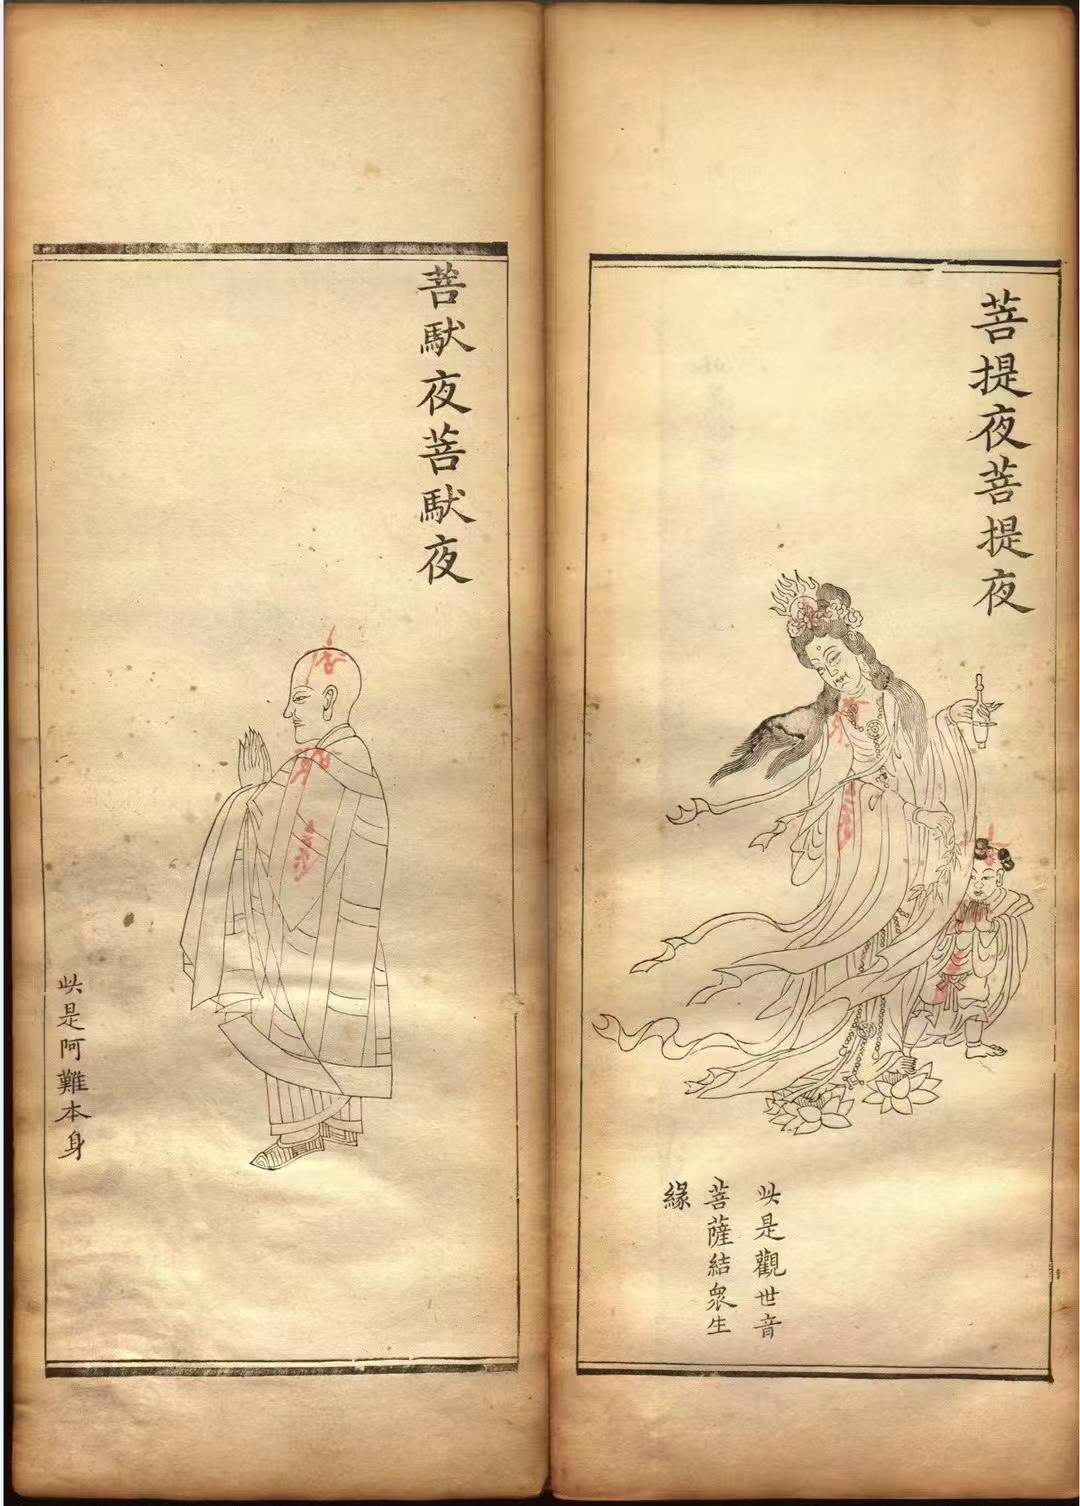 菩提夜菩提夜
此是觀世音
菩薩結眾生
緣
菩馱夜菩馱夜
此是阿難本身